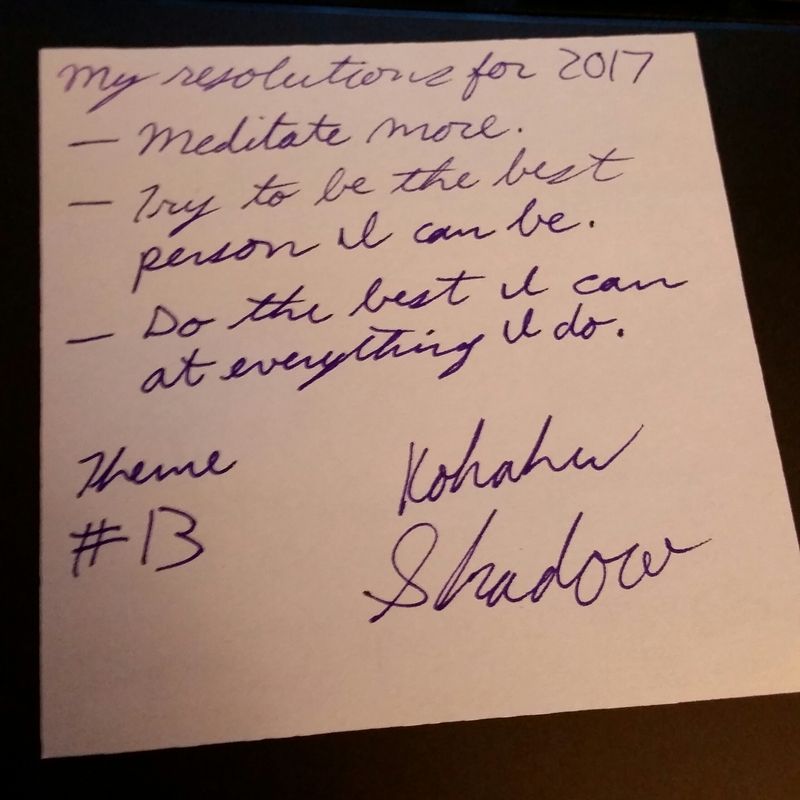 My resolutions for 2017
– Meditate more.
– Try to be the best
person I can be.
– Do the best I can
at everything I do.
Theme
#13
Kohahu
Shadow